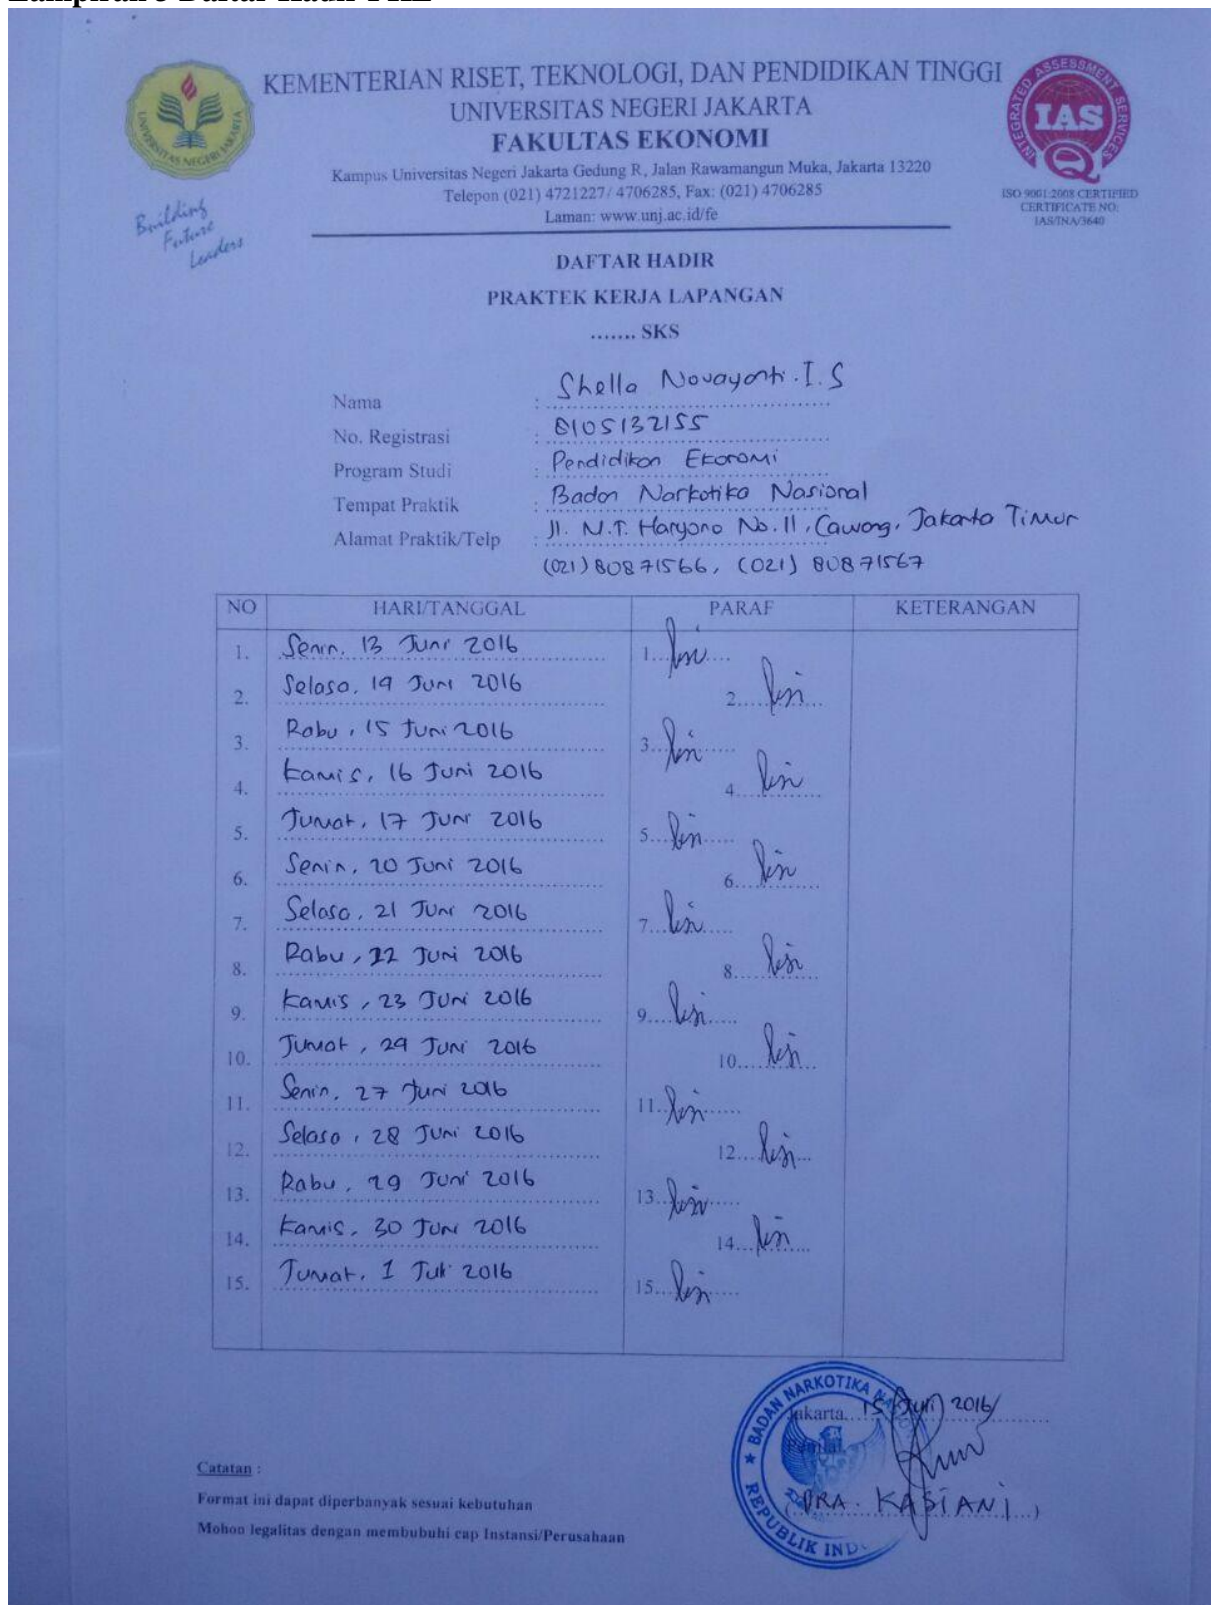 KEMENTERIAN RISET, TEKNOLOGI, DAN PENDIDIKAN TINGGI
UNIVERSITAS NEGERI JAKARTA
FAKULTAS EKONOMI
Kampus Universitas Negeri Jakarta Gedung R, Jalan Rawamangun Muka, Jakarta 13220
Telepon (021) 4721227/ 4706285, Fax: (021) 4706285
Laman: www.unj.ac.id/fe
UNIVERSITAS NEGERI JAKARTA
Building
Future
Leaders
INTEGRATED ASSESSMENT SERVICES
IAS
ISO 9001:2008 CERTIFIED
CERTIFICATE NO:
IAS/INA/3640
DAFTAR HADIR
PRAKTEK KERJA LAPANGAN
....... SKS
Nama : Shella Novayanti. I. S
No. Registrasi : 8105132155
Program Studi : Pendidikan Ekonomi
Tempat Praktik : Badan Narkotika Nasional
Alamat Praktik/Telp : Jl. M.T. Haryono No. 11, Cawang, Jakarta Timur
(021) 80871566, (021) 80871567
NO HARI/TANGGAL PARAF KETERANGAN
1. Senin, 13 Juni 2016 1.
2. Selasa, 14 Juni 2016 2.
3. Rabu, 15 Juni 2016 3.
4. Kamis, 16 Juni 2016 4.
5. Jumat, 17 Juni 2016 5.
6. Senin, 20 Juni 2016 6.
7. Selasa, 21 Juni 2016 7.
8. Rabu, 22 Juni 2016 8.
9. Kamis, 23 Juni 2016 9.
10. Jumat, 24 Juni 2016 10.
11. Senin, 27 Juni 2016 11.
12. Selasa, 28 Juni 2016 12.
13. Rabu, 29 Juni 2016 13.
14. Kamis, 30 Juni 2016 14.
15. Jumat, 1 Juli 2016 15.
Jakarta, 15 2016
Penilai,
(DRA. KASIANI)
BADAN NARKOTIKA
REPUBLIK
Catatan :
Format ini dapat diperbanyak sesuai kebutuhan
Mohon legalitas dengan membubuhi cap Instansi/Perusahaan